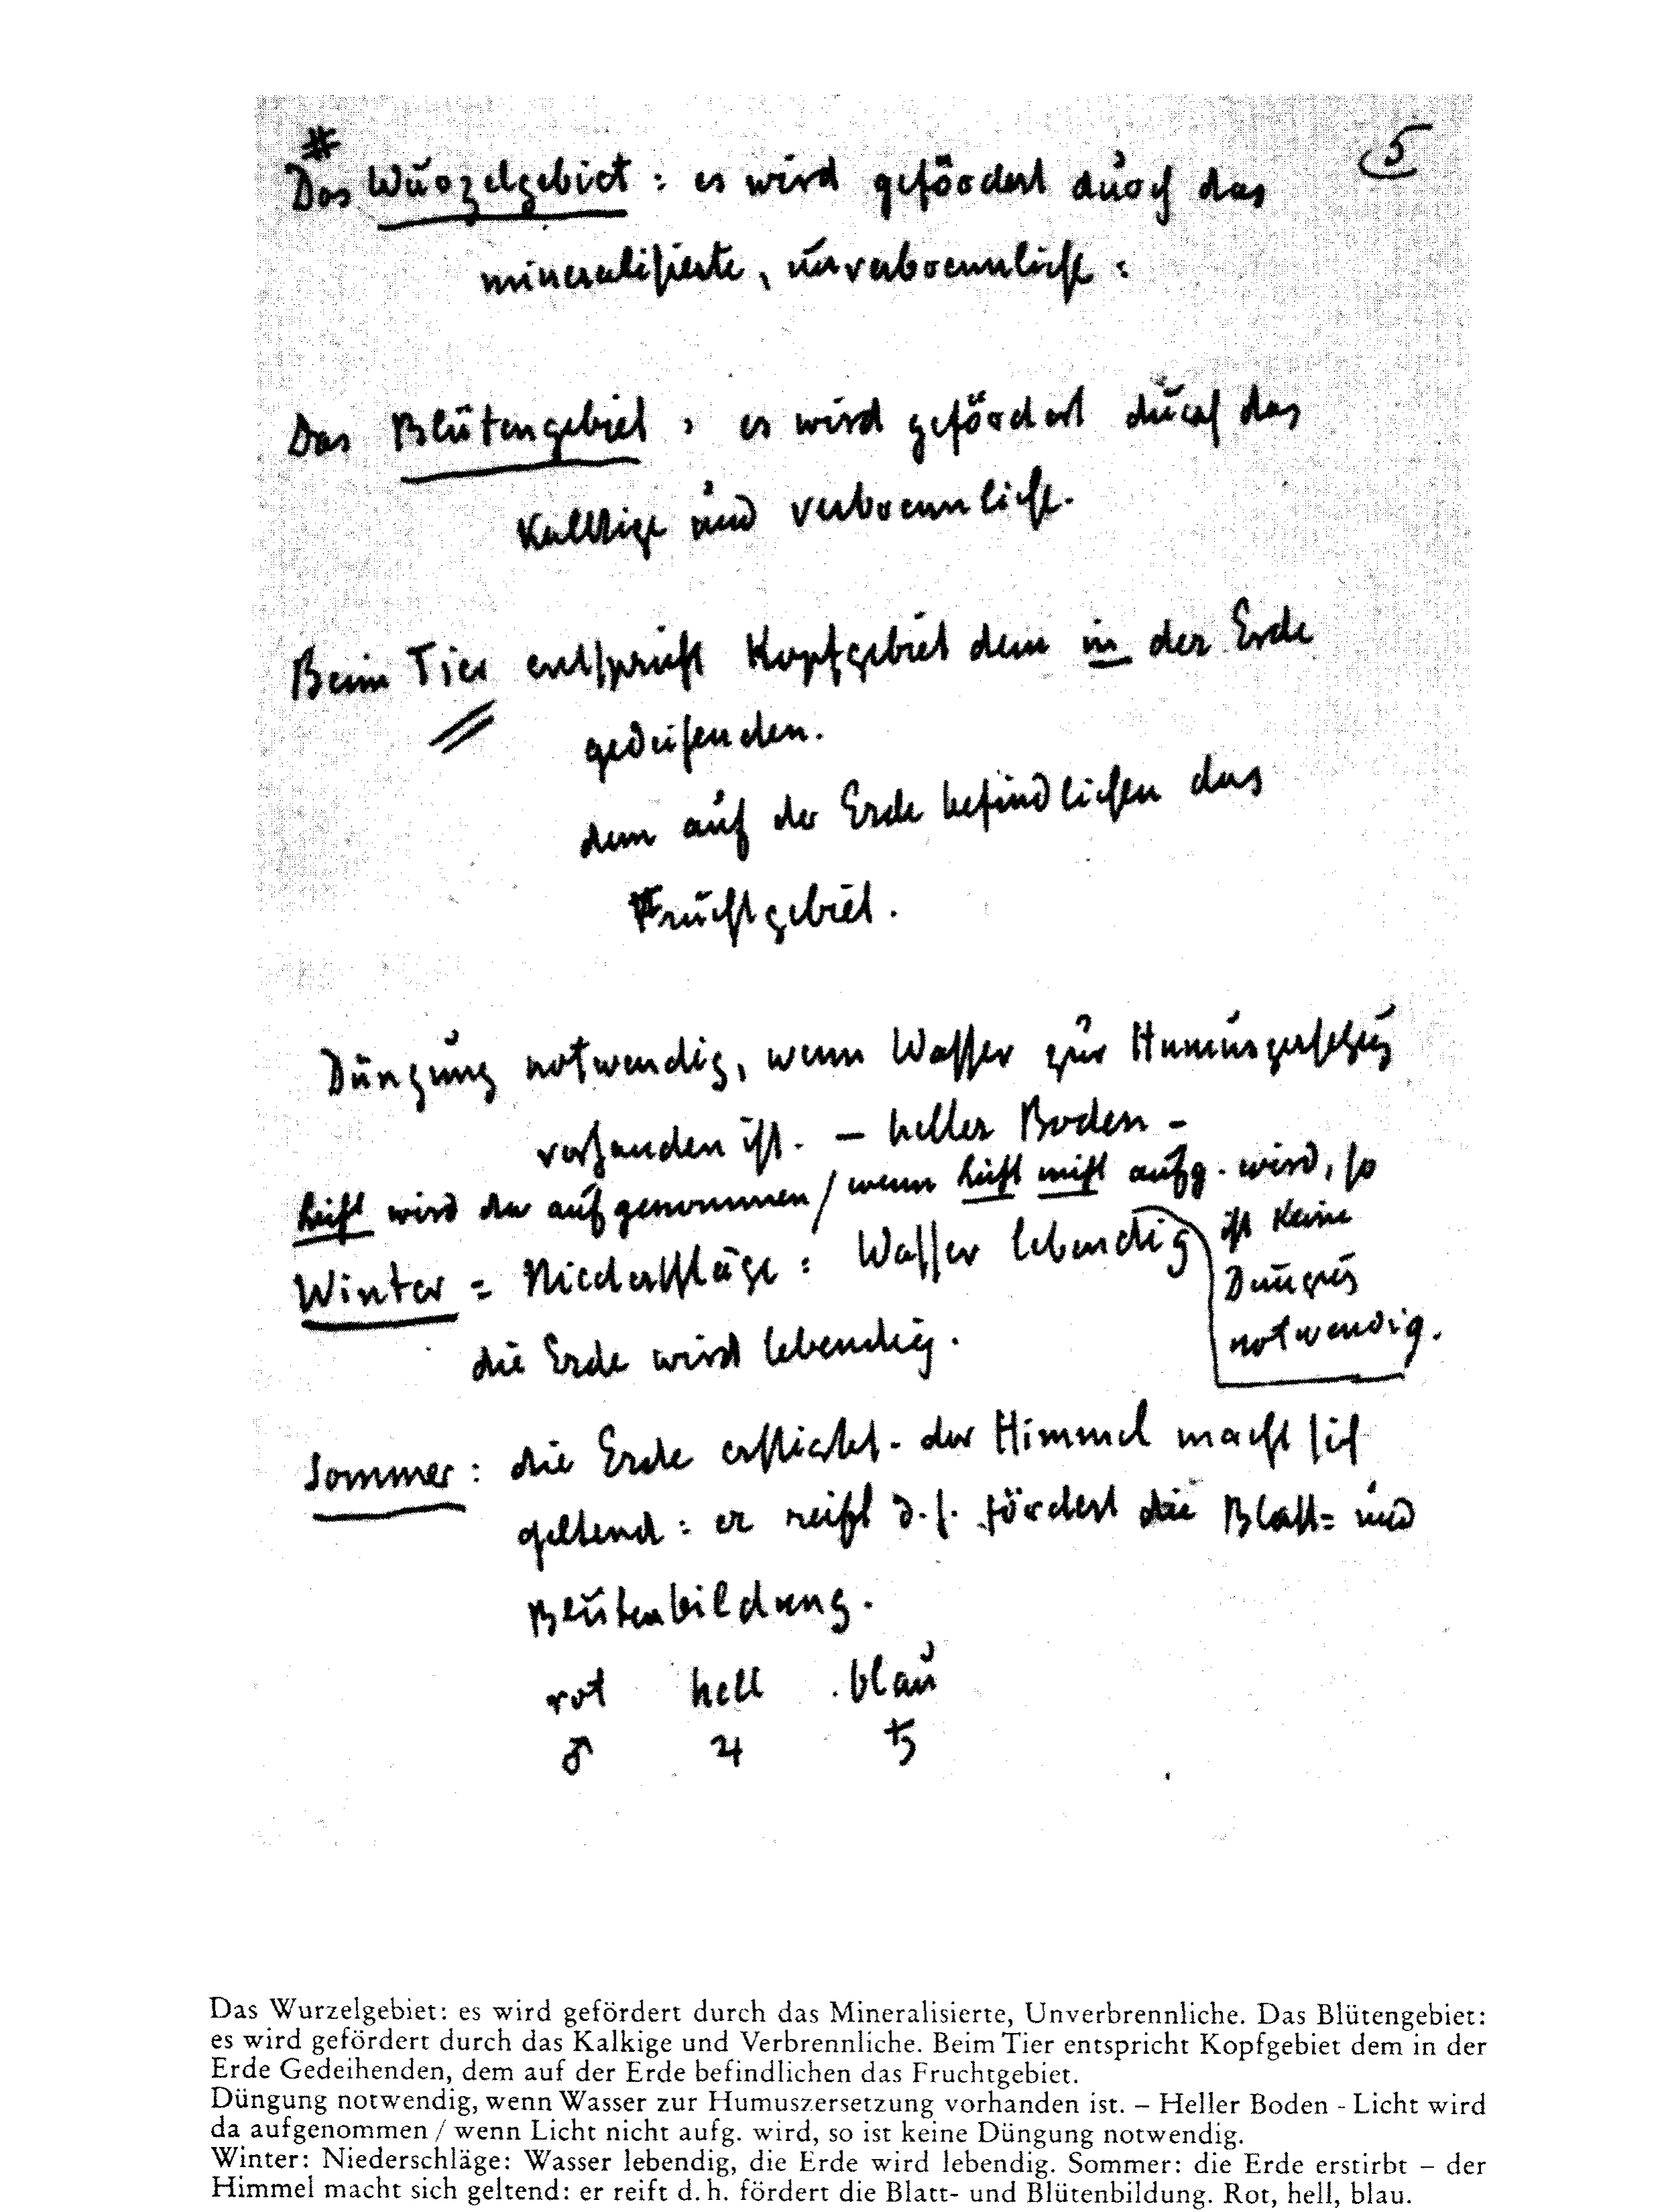 5
Das Wurzelgebiet : es wird gefördert durch das
mineralisierte, unverbrennliche :
Das Blütengebiet : es wird gefördert durch das
Kalkige und verbrennliche.
Beim Tier entspricht Kopfgebiet dem in der Erde
gedeihenden.
dem auf der Erde befindlichen das
Fruchtgebiet.
Düngung notwendig, wenn Wasser zur Humuszersetzung
vorhanden ist. – heller Boden –
Licht wird da aufgenommen / wenn Licht nicht aufg. wird, so
ist keine
Düngung
notwendig.
Winter = Niederschläge : Wasser lebendig
die Erde wird lebendig.
Sommer : die Erde erstirbt - der Himmel macht sich
geltend : er reift d. h. fördert die Blatt= und
Blütenbildung.
rot hell blau
♂ ♃ ♄
Das Wurzelgebiet: es wird gefördert durch das Mineralisierte, Unverbrennliche. Das Blütengebiet:
es wird gefördert durch das Kalkige und Verbrennliche. Beim Tier entspricht Kopfgebiet dem in der
Erde Gedeihenden, dem auf der Erde befindlichen das Fruchtgebiet.
Düngung notwendig, wenn Wasser zur Humuszersetzung vorhanden ist. – Heller Boden - Licht wird
da aufgenommen / wenn Licht nicht aufg. wird, so ist keine Düngung notwendig.
Winter: Niederschläge: Wasser lebendig, die Erde wird lebendig. Sommer: die Erde erstirbt – der
Himmel macht sich geltend: er reift d. h. fördert die Blatt- und Blütenbildung. Rot, hell, blau.